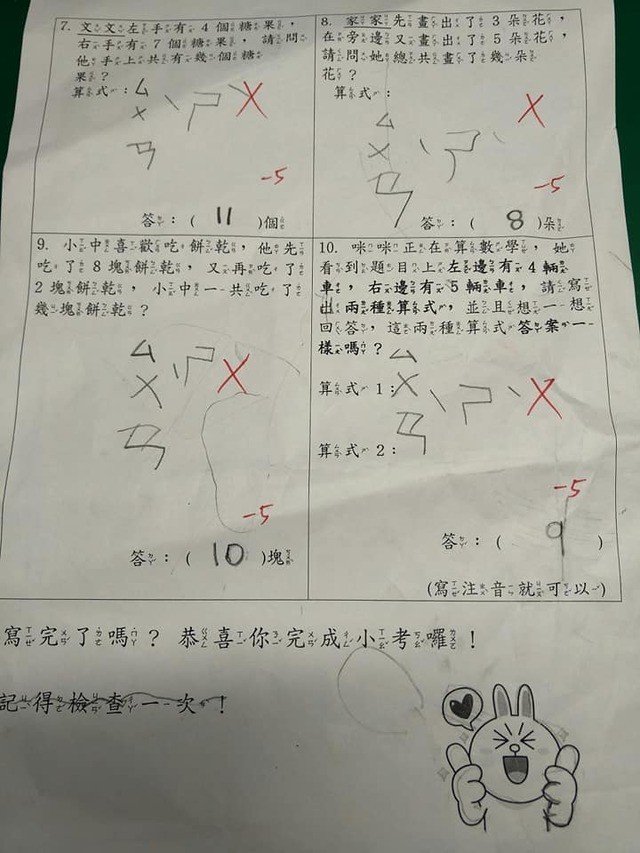 7. 文文左手有 4 個糖果，
右手有 7 個糖果，請問
他手上共有幾個糖
果？
算式：
ㄙㄨㄢˋ ㄕˋ
-5
答：( 11 )個
8. 家家先畫出了 3 朵花，
在旁邊又畫出了 5 朵花，
請問她總共畫了幾朵
花？
算式：
ㄙㄨㄢˋ ㄕˋ
-5
答：( 8 )朵
9. 小中喜歡吃餅乾，他先
吃了 8 塊餅乾，又再吃了
2 塊餅乾，小中一共吃了
幾塊餅乾？
ㄙㄨㄢˋ ㄕˋ
-5
答：( 10 )塊
10. 咪咪正在算數學，她
看到題目上左邊有 4 輛
車，右邊有 5 輛車，請寫
出兩種算式，並且想一想
回答，這兩種算式答案一
樣嗎？
算式 1：
ㄙㄨㄢˋ ㄕˋ
算式 2：
-5
答：( 9 )
(寫注音就可以)
寫完了嗎？ 恭喜你完成小考囉！
記得檢查一次！